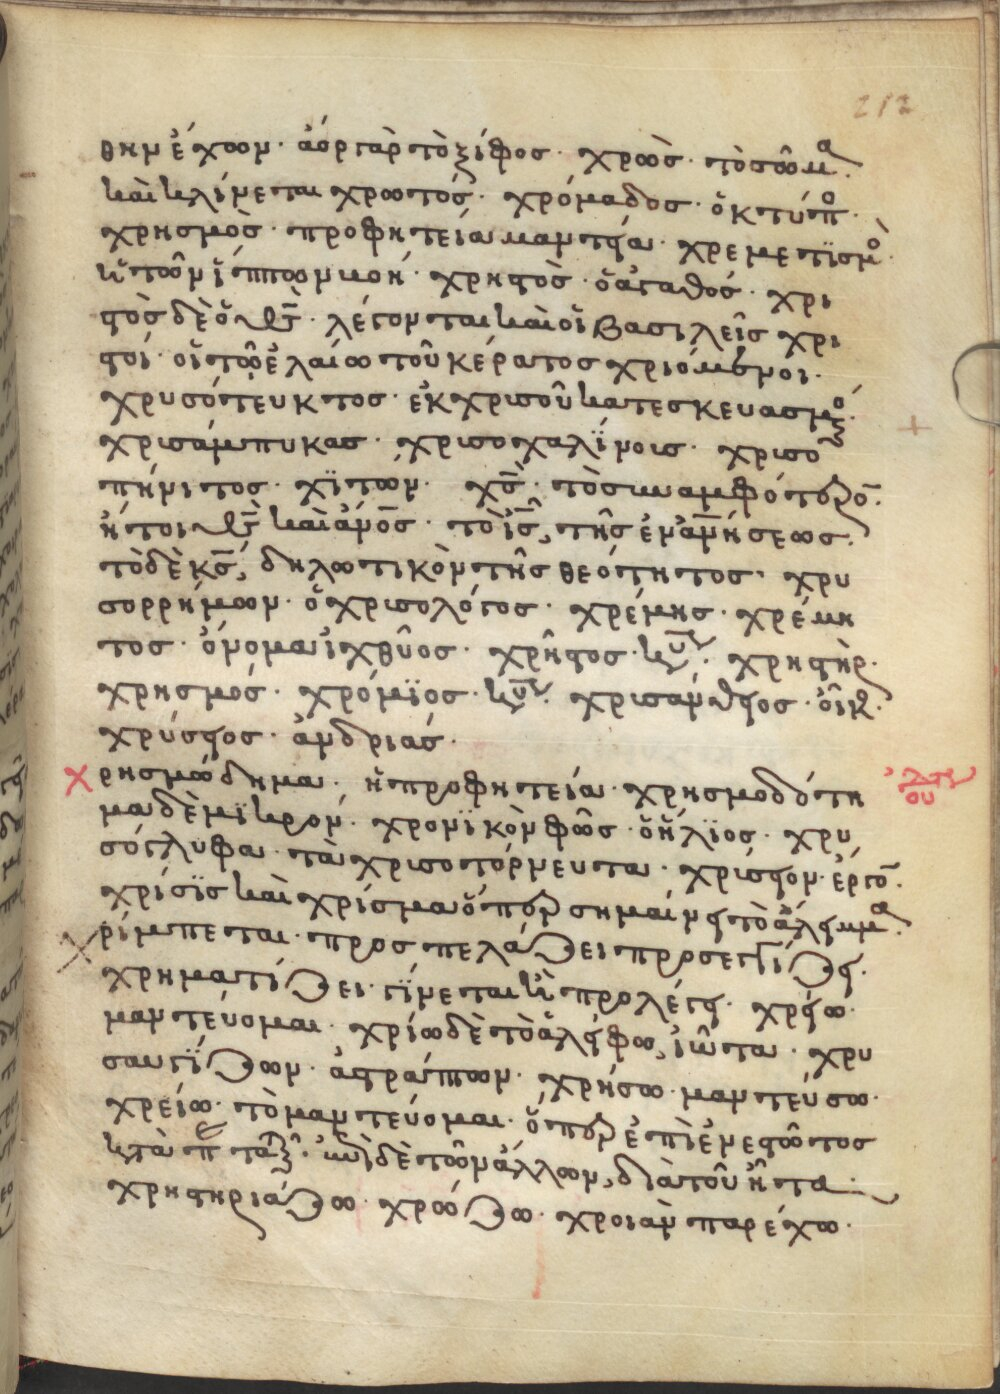 212
θην ἔχων· ἄορ γὰρ τὸ ξίφος· χρωὸς· τὸ σῶμα
καὶ κλίνεται χρωτός· χρόμαδος· ὁ κτύπο
χρησμὸς· προφητεία μαντεία· χρεμετϊσμὸ
ἡ τῶν ἵππων φωνή· χρηστὸς· ὁ ἀγαθός· χρι
στὸς δὲ ὁ θς· λέγονται καὶ οἱ βασιλεῖς χρι
στοί· οἱ τῶ ἐλαίω τοῦ κέρατος χριόμενοι·
χρυσότευκτος· ἐκ χρισοῦ κατεσκευασμένο
χρισάμπυκας· χρισοχαλίνοις· χρισο
πήνιτος· χϊτών· χς· τὸ συναμφότερον·
ἤτοι θς καὶ ἄνος· τὸ ις, τῆς ἐνανήσεως·
τὸ δὲ κς, δηλωτικὸν τῆς θεότητος· χρυ
σορρήμων· ὁ χρισολόγος· χρέμης· χρέμη
τος· ὄνομα ἰχθύος· χρῆστος· κύ· χρηστὴρ·
χρησμός· χρόμϊος· κύ· χρισάνθεος· οἶκ
χρύστος· ἀνδριάς·
χρησμώδημα· ἡ προφητεία· χρησμοδότη
μα δὲ μϊκρόν· χρονϊκὸν φῶς· ὁ ἥλϊος· χρυ
σόγλυφα· τὰ χρισοτόρνευτα· χρίστον· ἔργον·
χρίσϊς καὶ χρίσμα ὅπερ σημαίνει τὸ ἄλειμμα
χρίμπεται· προσπελάζει προσεγγίζει·
χρηματίζει· γίνεται ἢ προλέγει· χρείω·
μαντεύομαι· χρίω δὲ τὸ ἀλείφω, ἰῶτα· χρυ
σαυγίζων· ἀστράπτων· χρήσω· μαντεύσω·
χρείω· τὸ μαντεύομαι· ὅπερ ἐπὶ ἐνεστῶτος
χρηστηριάζω· χρώζω· χροιὰν παρέχω·